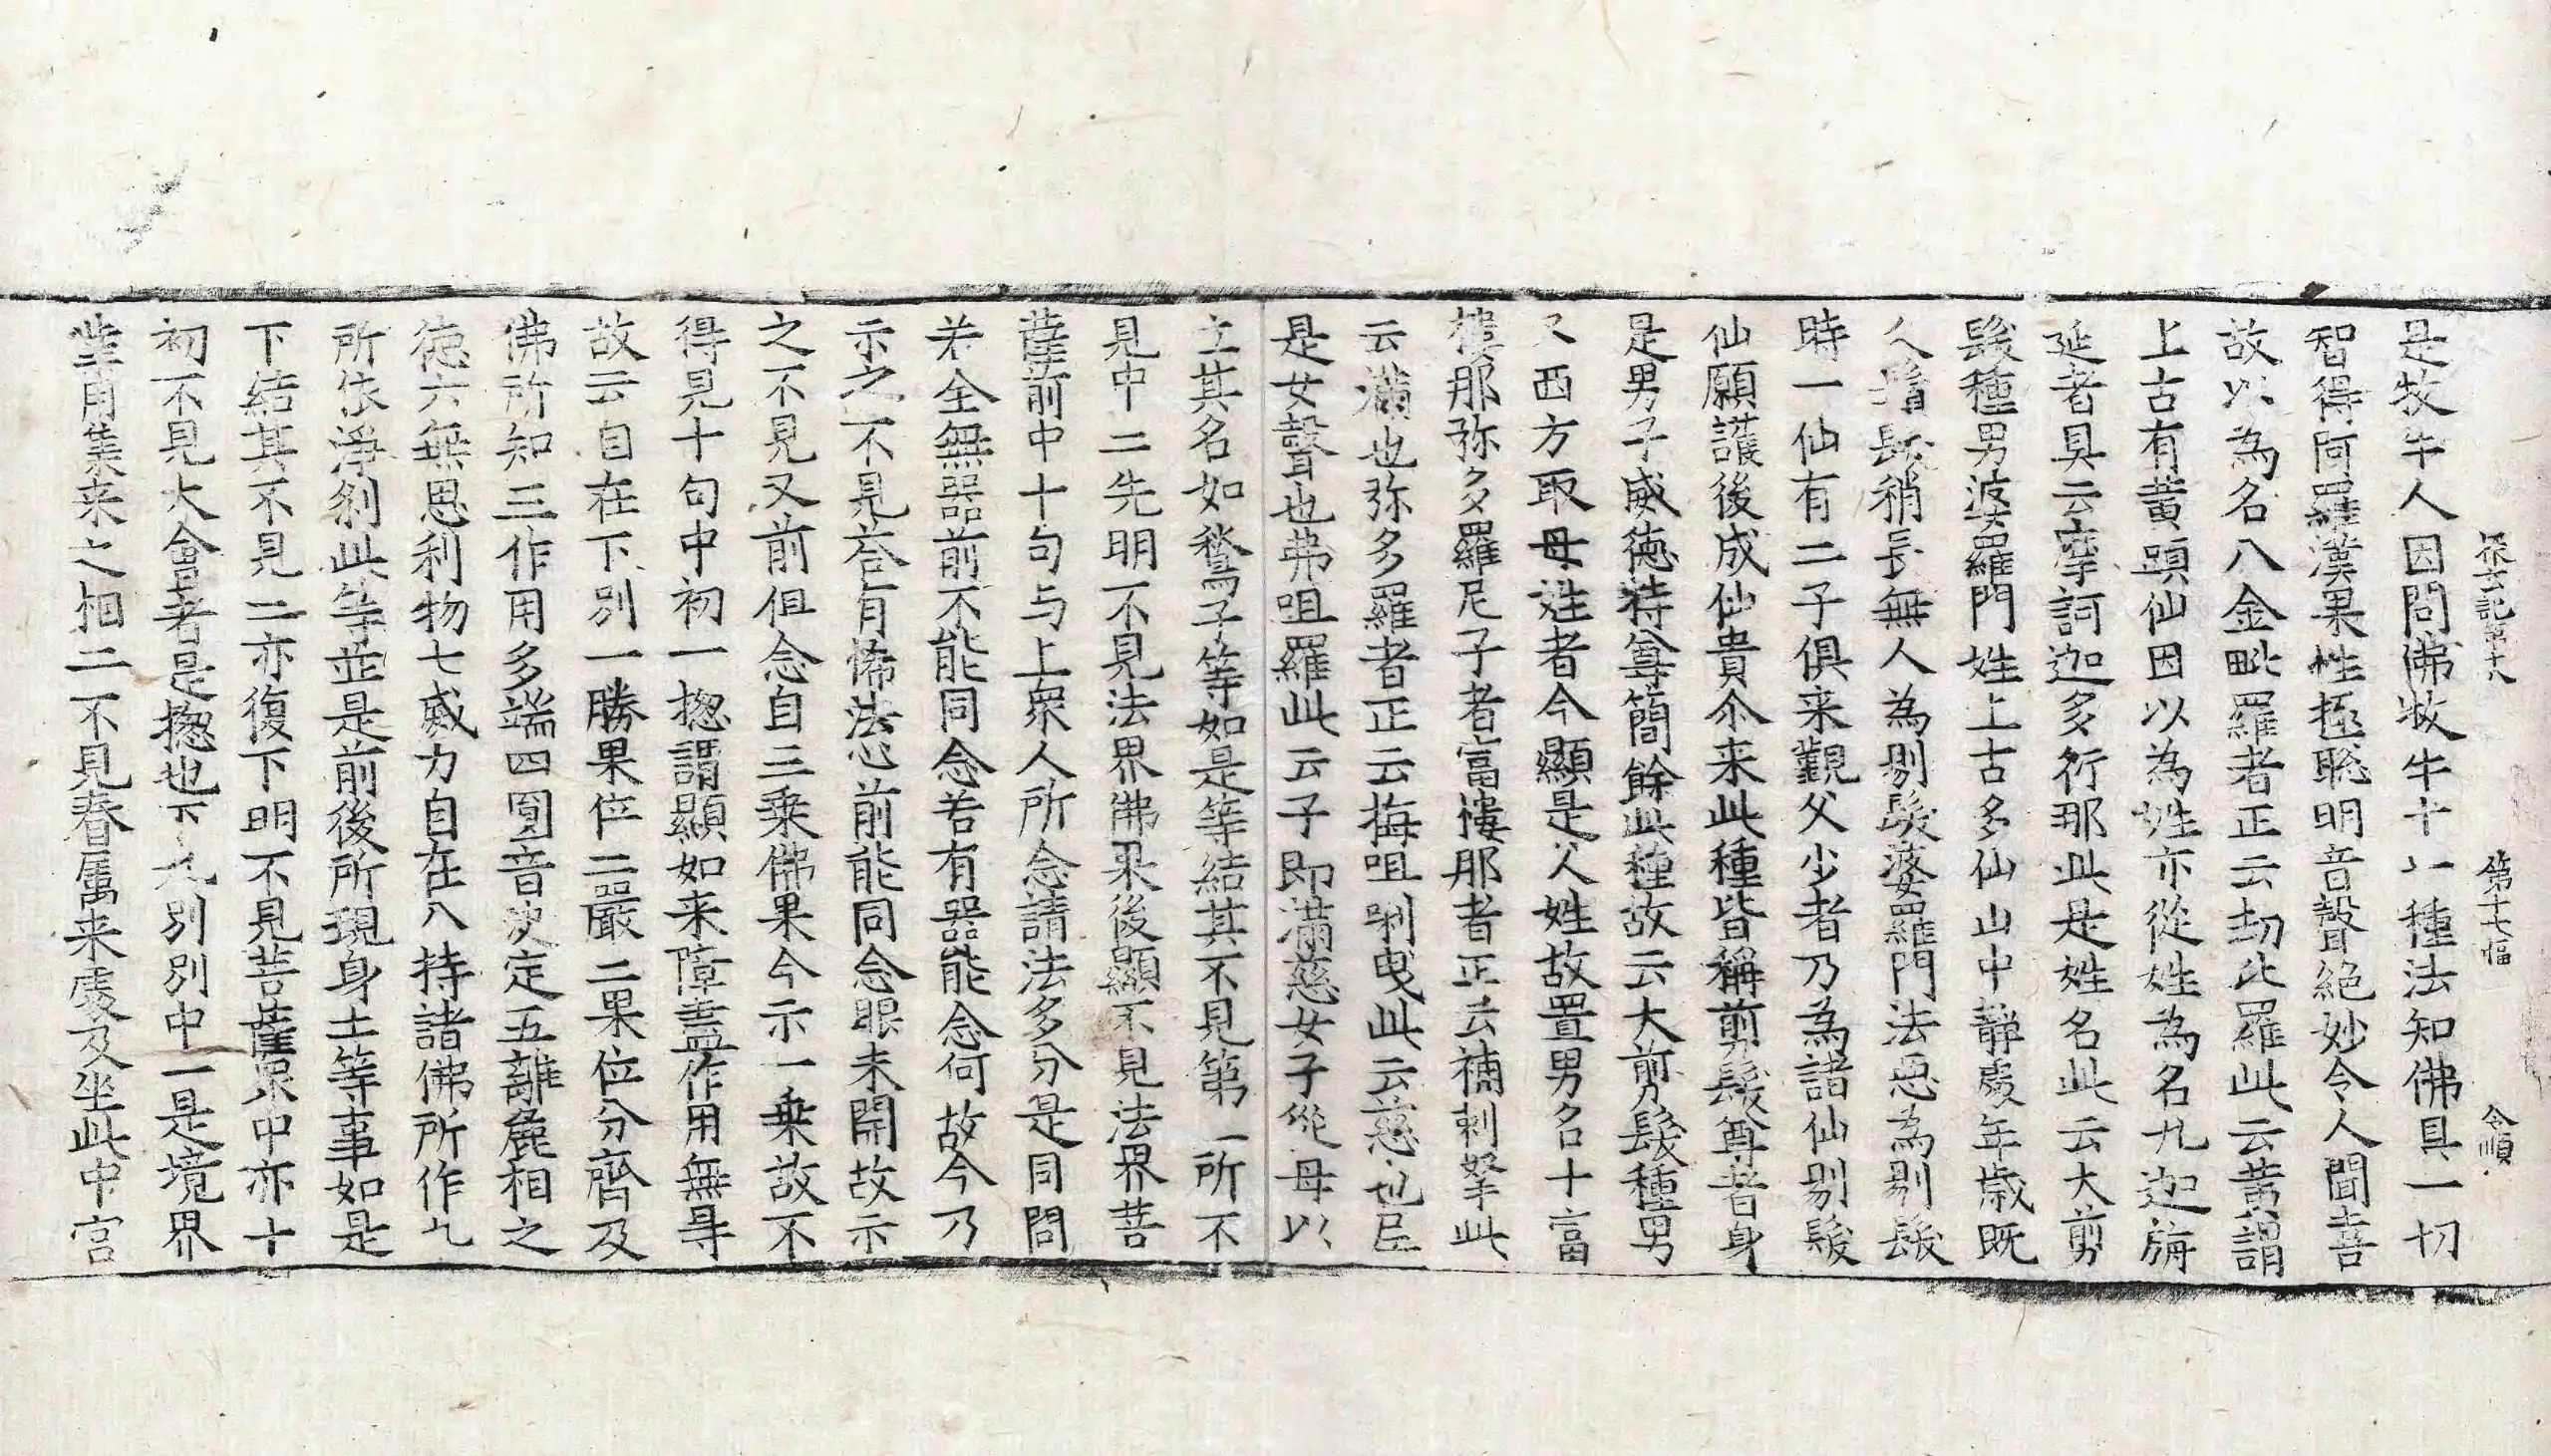 探玄記第十八 第十七幅 令順
是牧牛人因問佛牧牛十一種法知佛具一切
智得阿羅漢果性極聡明音聲絶妙令人聞喜
故以為名八金毗羅者正云劫比羅此云黄謂
上古有黄頭仙因以為姓亦從姓為名九迦旃
延者具云摩訶迦多衍那此是姓名此云大剪
髮種男婆羅門姓上古多仙山中靜處年歳既
久鬚髮稍長無人為剔髮婆羅門法惡為剔髮
時一仙有二子俱来觀父少者乃為諸仙剔髮
仙願護後成仙貴尒来此種皆稱剪髮尊者身
是男子威徳特尊簡餘此種故云大剪髮種男
又西方取母姓者今顯是父姓故置男名十富
樓那弥多羅尼子者富樓那者正云補剌拏此
云滿也弥多羅者正云梅咀剌曳此云慈也尼
是女聲也弗咀羅此云子即滿慈女子從母以
立其名如鶖子等如是等結其不見第一所不
見中二先明不見法界佛果後顯不見法界菩
薩前中十句与上衆人所念請法多分是同問
若全無器前不能同念若有器能念何故今乃
示之不見荅有悕法心前能同念眼未開故示
之不見又前但念自三乗佛果今示一乗故不
得見十句中初一揔謂顯如来障盡作用無㝵
故云自在下別一勝果位二嚴二果位分齊及
佛所知三作用多端四圓音决定五離麁相之
徳六無思利物七威力自在八持諸佛所作九
所依淨刹此等並是前後所現身土等事如是
下結其不見二亦復下明不見菩薩衆中亦十
初不見大會者是揔也下九別別中一是境界
堂用集来之相二不見眷属来處及坐此中宫